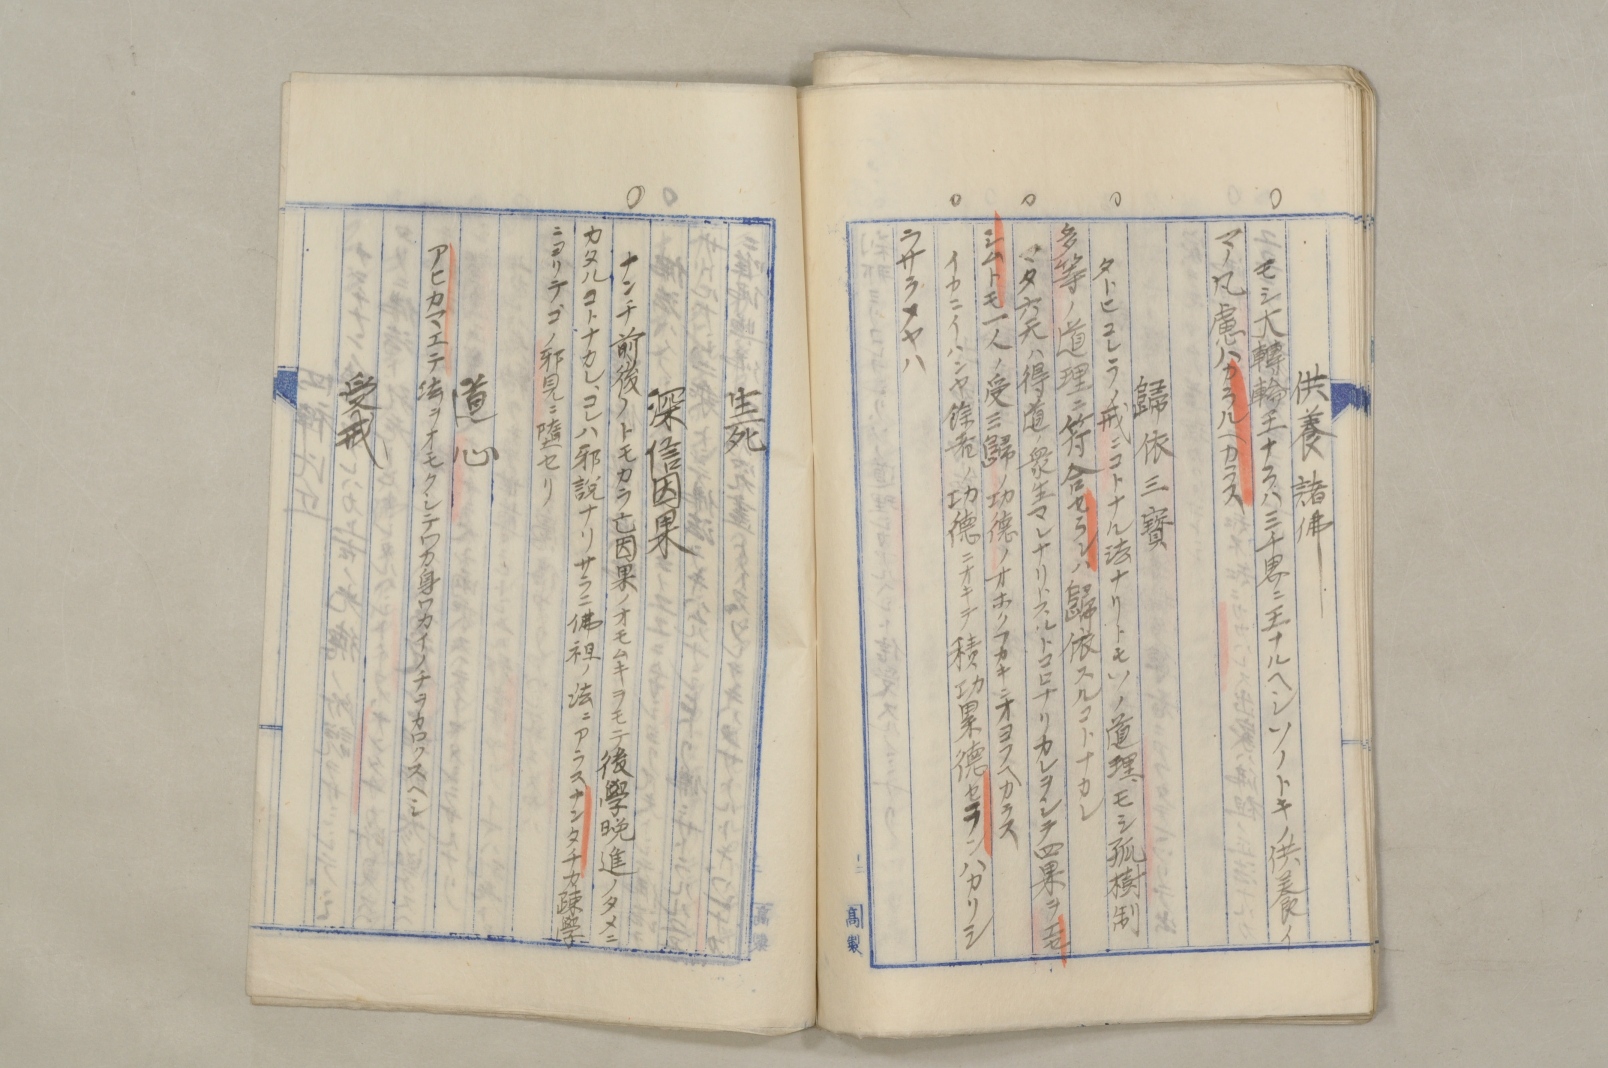 供養諸佛
モシ大轉輪王ナラハ三千界ニ王ナルヘシソノトキノ供養イ
マノ凡慮ハカラルヘカラス
歸依三寶
タトヒコレラノ戒ニコトナル法ナリトモソノ道理モシ孤樹制
多等ノ道理ニ符合セランハ歸依スルコトナカレ
マタ六天ハ得道ノ衆生マレナリ
シムトモ一人ノ受三歸ノ功德ノオホクフカキニオヨフヘカラス
イカニイハンヤ餘者ノ功德ニオキテ積功累德セランハカリシ
ラサラメヤハ
高製
生死
深信因果
ナンチ前後ノトモカラ亡因果ノオモムキヲモテ後學晩進ノタメニ
カタルコトナカレ、コレハ邪説ナリサラニ佛祖ノ法ニアラスナンタチカ疎學
ニヨリテ、コノ邪見ニ墮セリ
道心
アヒカマエテ法ヲオモクシテワカ身ワカイノチヲカロクスヘシ
受戒